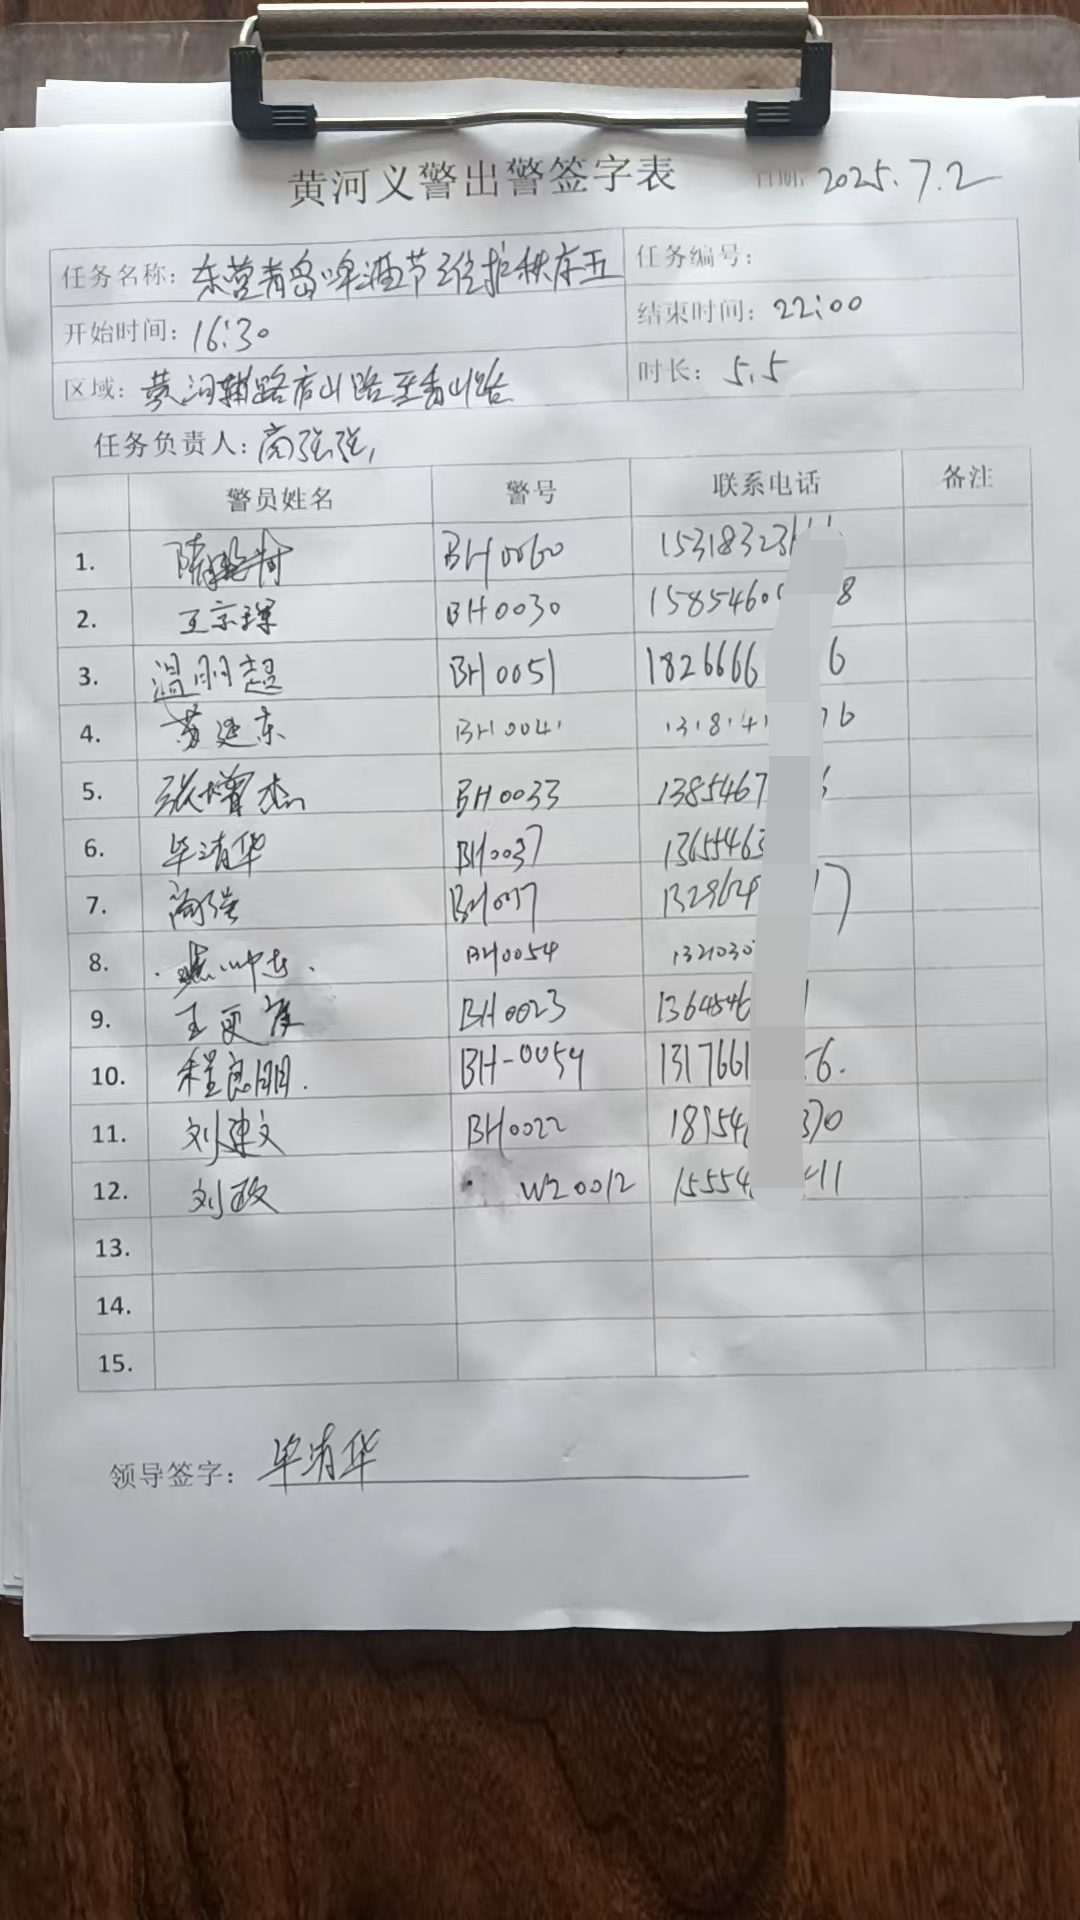 黄河义警出警签字表 日期: 2025.7.2
任务名称: 东营青岛啤酒节维护秩序五 任务编号:
开始时间: 16:30 结束时间: 22:00
区域: 黄河辅路庐山路至香山路 时长: 5.5
任务负责人: 高强强
警员姓名 警号 联系电话 备注
1. BH0060 15318323
2. 王宗珲 BH0030 1585460 8
3. 温明超 BH0051 1826666 6
4. 苏建东 BH0041 13181 76
5. 张增杰 BH0033 1385467
6. 毕清华 BH0037 1365463
7. 高强 132962 17
8. BH0054 132030
9. 王更 BH0023 1364546 1
10. 程良朋. BH-0054 1317661 6.
11. 刘建文 BH0022 18954 370
12. 刘政 WZ0012 15554 11
13.
14.
15.
领导签字: 毕清华